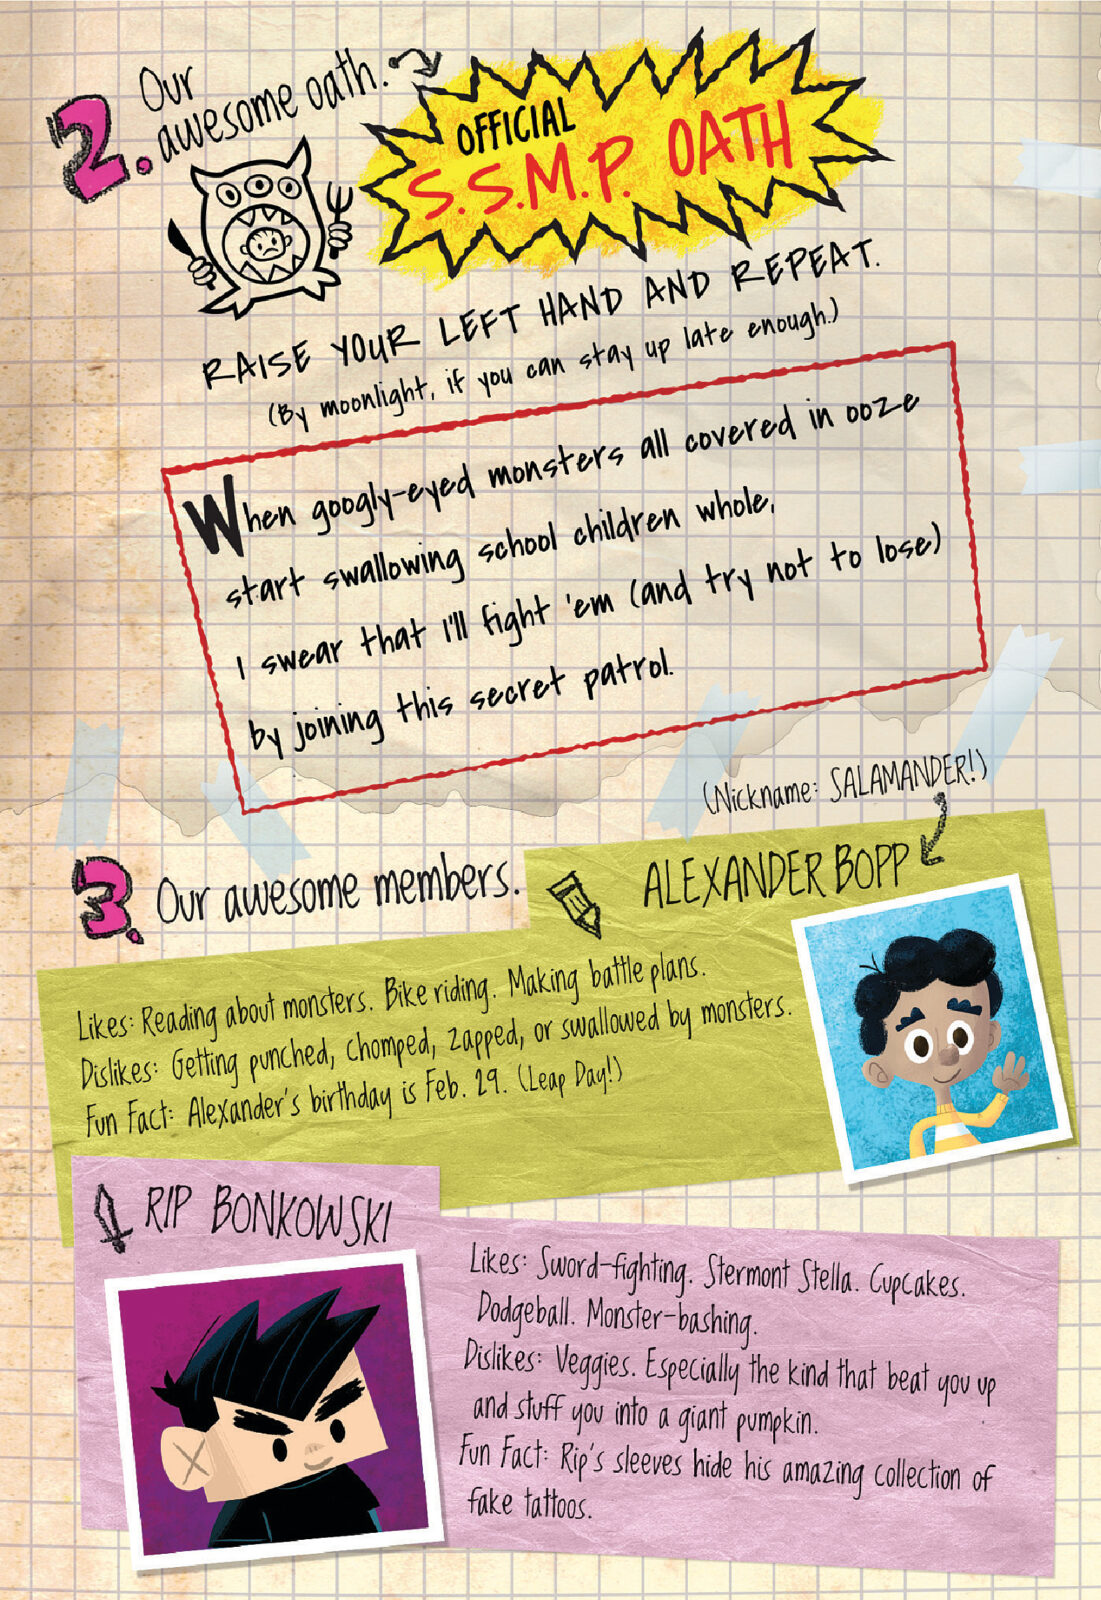 2. Our
awesome oath.
OFFICIAL
S.S.M.P. OATH
RAISE YOUR LEFT HAND AND REPEAT.
(By moonlight, if you can stay up late enough.)
When googly-eyed monsters all covered in ooze
start swallowing school children whole,
I swear that I'll fight 'em (and try not to lose)
by joining this secret patrol.
(Nickname: SALAMANDER!)
3. Our awesome members.
ALEXANDER BOPP
Likes: Reading about monsters. Bike riding. Making battle plans.
Dislikes: Getting punched, chomped, zapped, or swallowed by monsters.
Fun Fact: Alexander's birthday is Feb. 29. (Leap Day!)
RIP BONKOWSKI
Likes: Sword-fighting. Stermont Stella. Cupcakes.
Dodgeball. Monster-bashing.
Dislikes: Veggies. Especially the kind that beat you up
and stuff you into a giant pumpkin.
Fun Fact: Rip's sleeves hide his amazing collection of
fake tattoos.